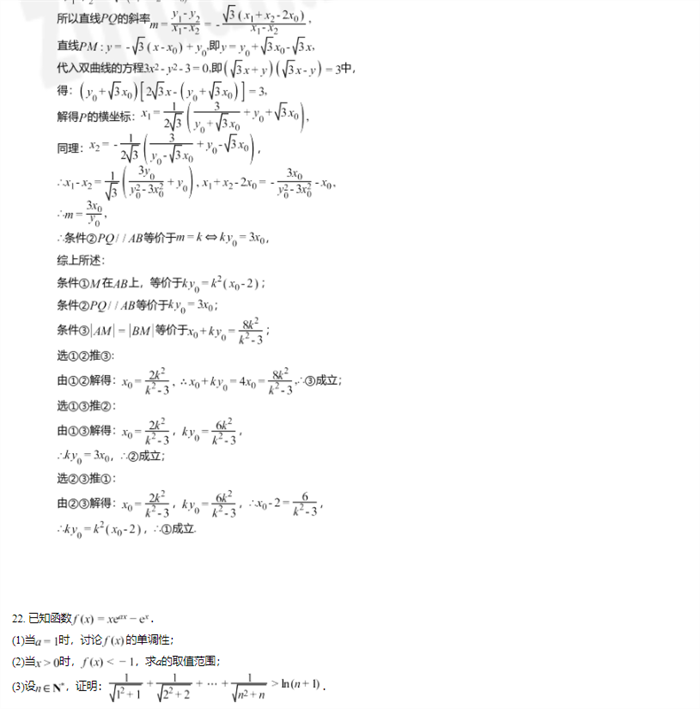 所以直线PQ的斜率m = (y₁-y₂)/(x₁-x₂) = -√3(x₁+x₂-2x₀)/(x₁-x₂),
直线PM : y = -√3(x-x₀)+y₀,即y = y₀+√3x₀-√3x,
代入双曲线的方程3x²-y²-3=0,即(√3x+y)(√3x-y)=3中,
得: (y₀+√3x₀)[2√3x-(y₀+√3x₀)]=3,
解得P的横坐标: x₁ = 1/(2√3) (3/(y₀+√3x₀) + y₀+√3x₀),
同理: x₂ = -1/(2√3) (3/(y₀-√3x₀) + y₀-√3x₀),
∴x₁-x₂ = 1/√3 (3y₀/(y₀²-3x₀²) + y₀), x₁+x₂-2x₀ = -3x₀/(y₀²-3x₀²) - x₀,
∴m = 3x₀/y₀,
∴条件②PQ//AB等价于m = k⇔ky₀ = 3x₀,
综上所述:
条件①M在AB上, 等价于ky₀ = k²(x₀-2);
条件②PQ//AB等价于ky₀ = 3x₀;
条件③|AM| = |BM|等价于x₀+ky₀ = 8k²/(k²-3);
选①②推③:
由①②解得: x₀ = 2k²/(k²-3), ∴x₀+ky₀ = 4x₀ = 8k²/(k²-3),∴③成立;
选①③推②:
由①③解得: x₀ = 2k²/(k²-3), ky₀ = 6k²/(k²-3),
∴ky₀ = 3x₀, ∴②成立;
选②③推①:
由②③解得: x₀ = 2k²/(k²-3), ky₀ = 6k²/(k²-3), ∴x₀-2 = 6/(k²-3),
∴ky₀ = k²(x₀-2), ∴①成立.
22. 已知函数f(x) = xeᵃˣ - eˣ.
(1)当a = 1时, 讨论f(x)的单调性;
(2)当x > 0时, f(x) < -1, 求a的取值范围;
(3)设n∈N*, 证明: 1/√(1²+1) + 1/√(2²+2) + ⋯ + 1/√(n²+n) > ln(n+1).